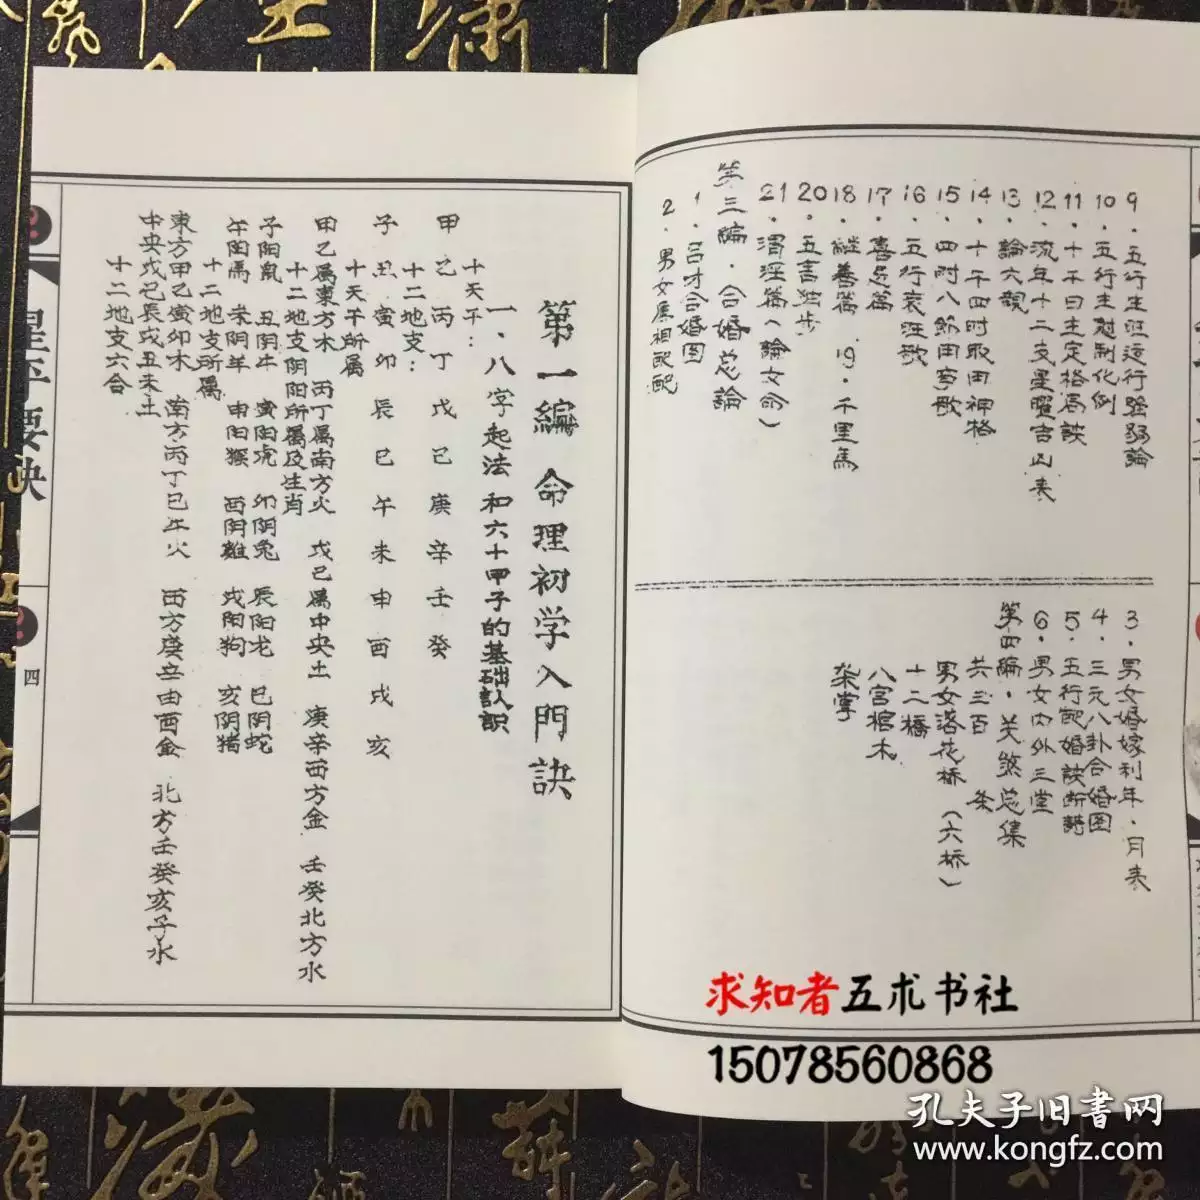 9．五行生旺运行强弱論
10．五行生尅制化例
11．十干日主定格局訣
12．流年十二支星曜吉凶表
13．論六親
14．十干四时取用神格
15．四时八節田亨歌
16．五行衰旺歌
17．喜忌篇
18．継善篇　19．千里馬
20．五言独步
21．渭泾篇（論女命）
第三編．合婚总論
1．吕才合婚图
2．男女属相配配
3．男女婚嫁利年．月表
4．三元八卦合婚图
5．五行配婚訣断語
6．男女内外三堂
第四編．关煞总集
共三百　条
男女落花桥（六桥）
十二橋
八宮棺木
架掌
第一編　命理初学入門訣
一．八字起法和六十甲子的基础认识
十天干：
甲乙丙丁戊己庚辛壬癸
十二地支：
子丑寅卯辰巳午未申酉戌亥
十天干所属
甲乙属東方木　丙丁属南方火　戊己属中央土　庚辛西方金　壬癸北方水
十二地支阴阳所属及生肖
子阳鼠　丑阴牛　寅阳虎　卯阴兔　辰阳龙　巳阴蛇
午阳馬　未阴羊　申阳猴　酉阴雞　戌阳狗　亥阴猪
十二地支所属
東方甲乙寅卯木　南方丙丁巳午火　西方庚辛申酉金　北方壬癸亥子水
中央戊己辰戌丑未土
十二地支六合
星平要訣
四
求知者五术书社
15078560868
孔夫子旧書网
www.kongfz.com